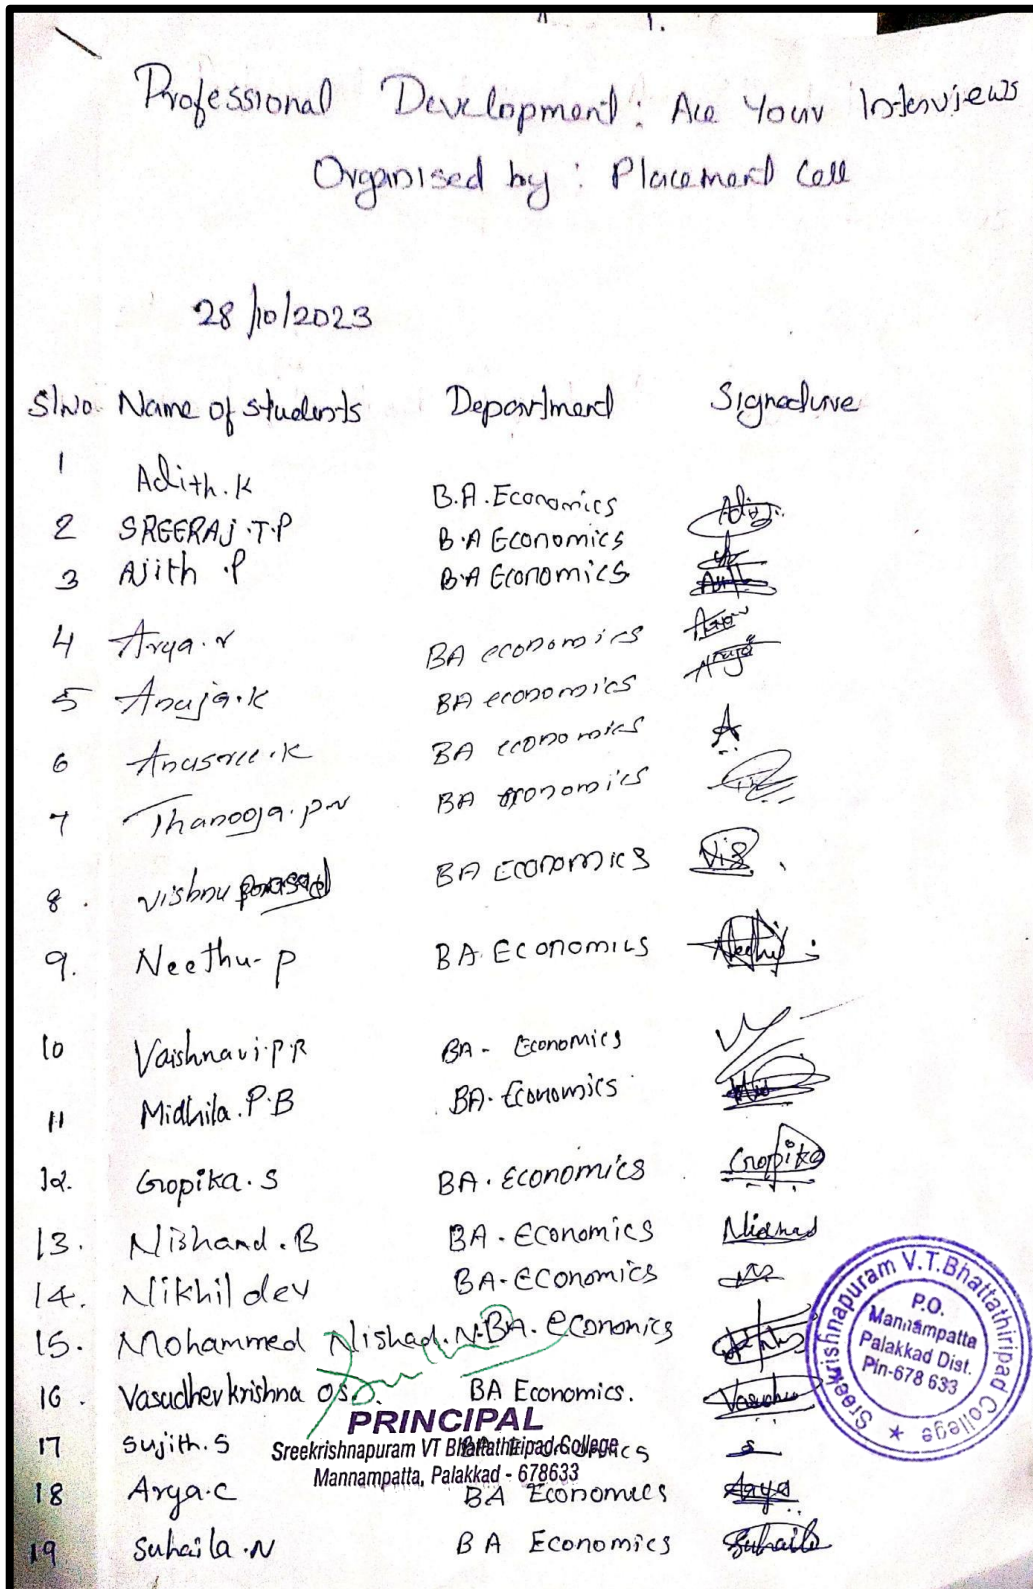 Professional Development: Ace Your Interviews
Organised by: Placement Cell
28/10/2023
Sl No. Name of students Department Signature
1 Adith.K B.A.Economics
2 SREERAJ.T.P B.A Economics
3 Ajith.P B.A Economics.
4 Arya.V BA economics
5 Anuja.K BA economics Anuja
6 Anusree.K BA economics A
7 Thanooja.P.N BA economics
8. Vishnu prasad BA Economics Vis
9. Neethu-P BA.Economics Neethu
10 Vaishnavi.P.R BA- Economics
11 Midhila.P.B BA-Economics
12. Gopika.S BA.Economics Gopika
13. Nishand.B BA-Economics
14. Nikhil dev BA-Economics
15. Mohammed Nishad.N.BA.economics
16. Vasudhevkrishna O.S. BA Economics.
PRINCIPAL
17 Sujith.S BA Economics S
Sreekrishnapuram VT Bhattathiripad College
Mannampatta, Palakkad - 678633
18 Arya.C BA Economics Arya
19 Suhaila.N BA Economics Suhaila
Sreekrishnapuram V.T.Bhattathiripad College
P.O.
Mannampatta
Palakkad Dist.
Pin-678 633